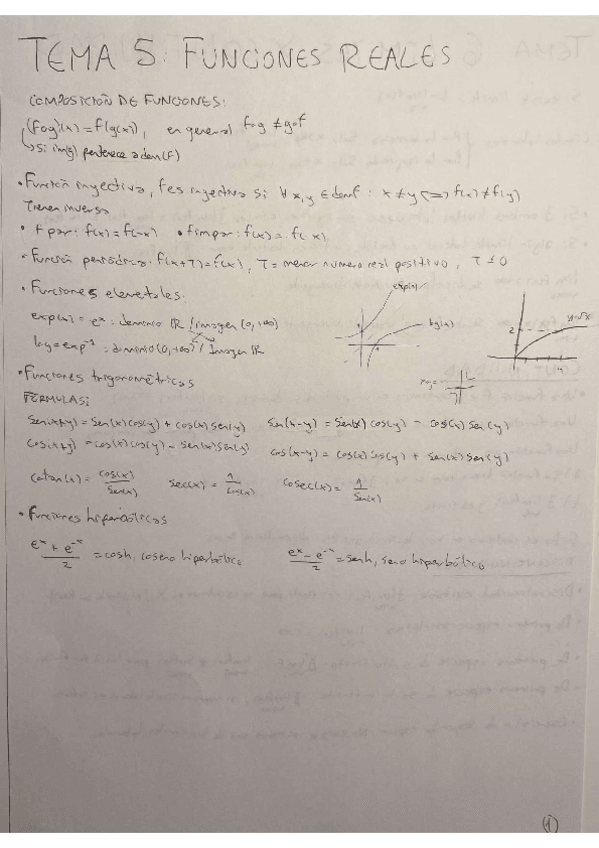 TEMA 5: FUNCIONES REALES
COMPOSICIÓN DE FUNCIONES:
(fog)(x) = f(g(x)), en general fog ≠ gof
↳ Si im(g) pertenece a dom(f)
• Función inyectiva, f es inyectiva si ∀x,y ∈ domf : x ≠ y (=) f(x) ≠ f(y)
Tienen inversa
• f par: f(x) = f(-x) • f impar: f(x) = - f(-x)
• Función periódica: f(x+T) = f(x), T = menor numero real positivo, T ≠ 0
• Funciones elementales:
exp(x)
exp(x) = eˣ : dominio ℝ / imagen (0,+∞)
log(x)
y=√x
2
4
log = exp⁻¹ : dominio (0,+∞) / Imagen ℝ
• Funciones trigonométricas
FÓRMULAS:
Sen(x+y) = Sen(x) cos(y) + cos(x) sen(y) Sen(x-y) = Sen(x) cos(y) - cos(x) sen(y)
Cos(x+y) = cos(x) cos(y) - sen(x) sen(y) cos(x-y) = cos(x) cos(y) + sen(x) sen(y)
cotan(x) = cos(x)/Sen(x) Sec(x) = 1/cos(x) Cosec(x) = 1/Sen(x)
• Funciones hiperbólicas
eˣ + e⁻ˣ/2 = cosh, coseno hiperbólico eˣ - e⁻ˣ/2 = senh, seno hiperbólico
1